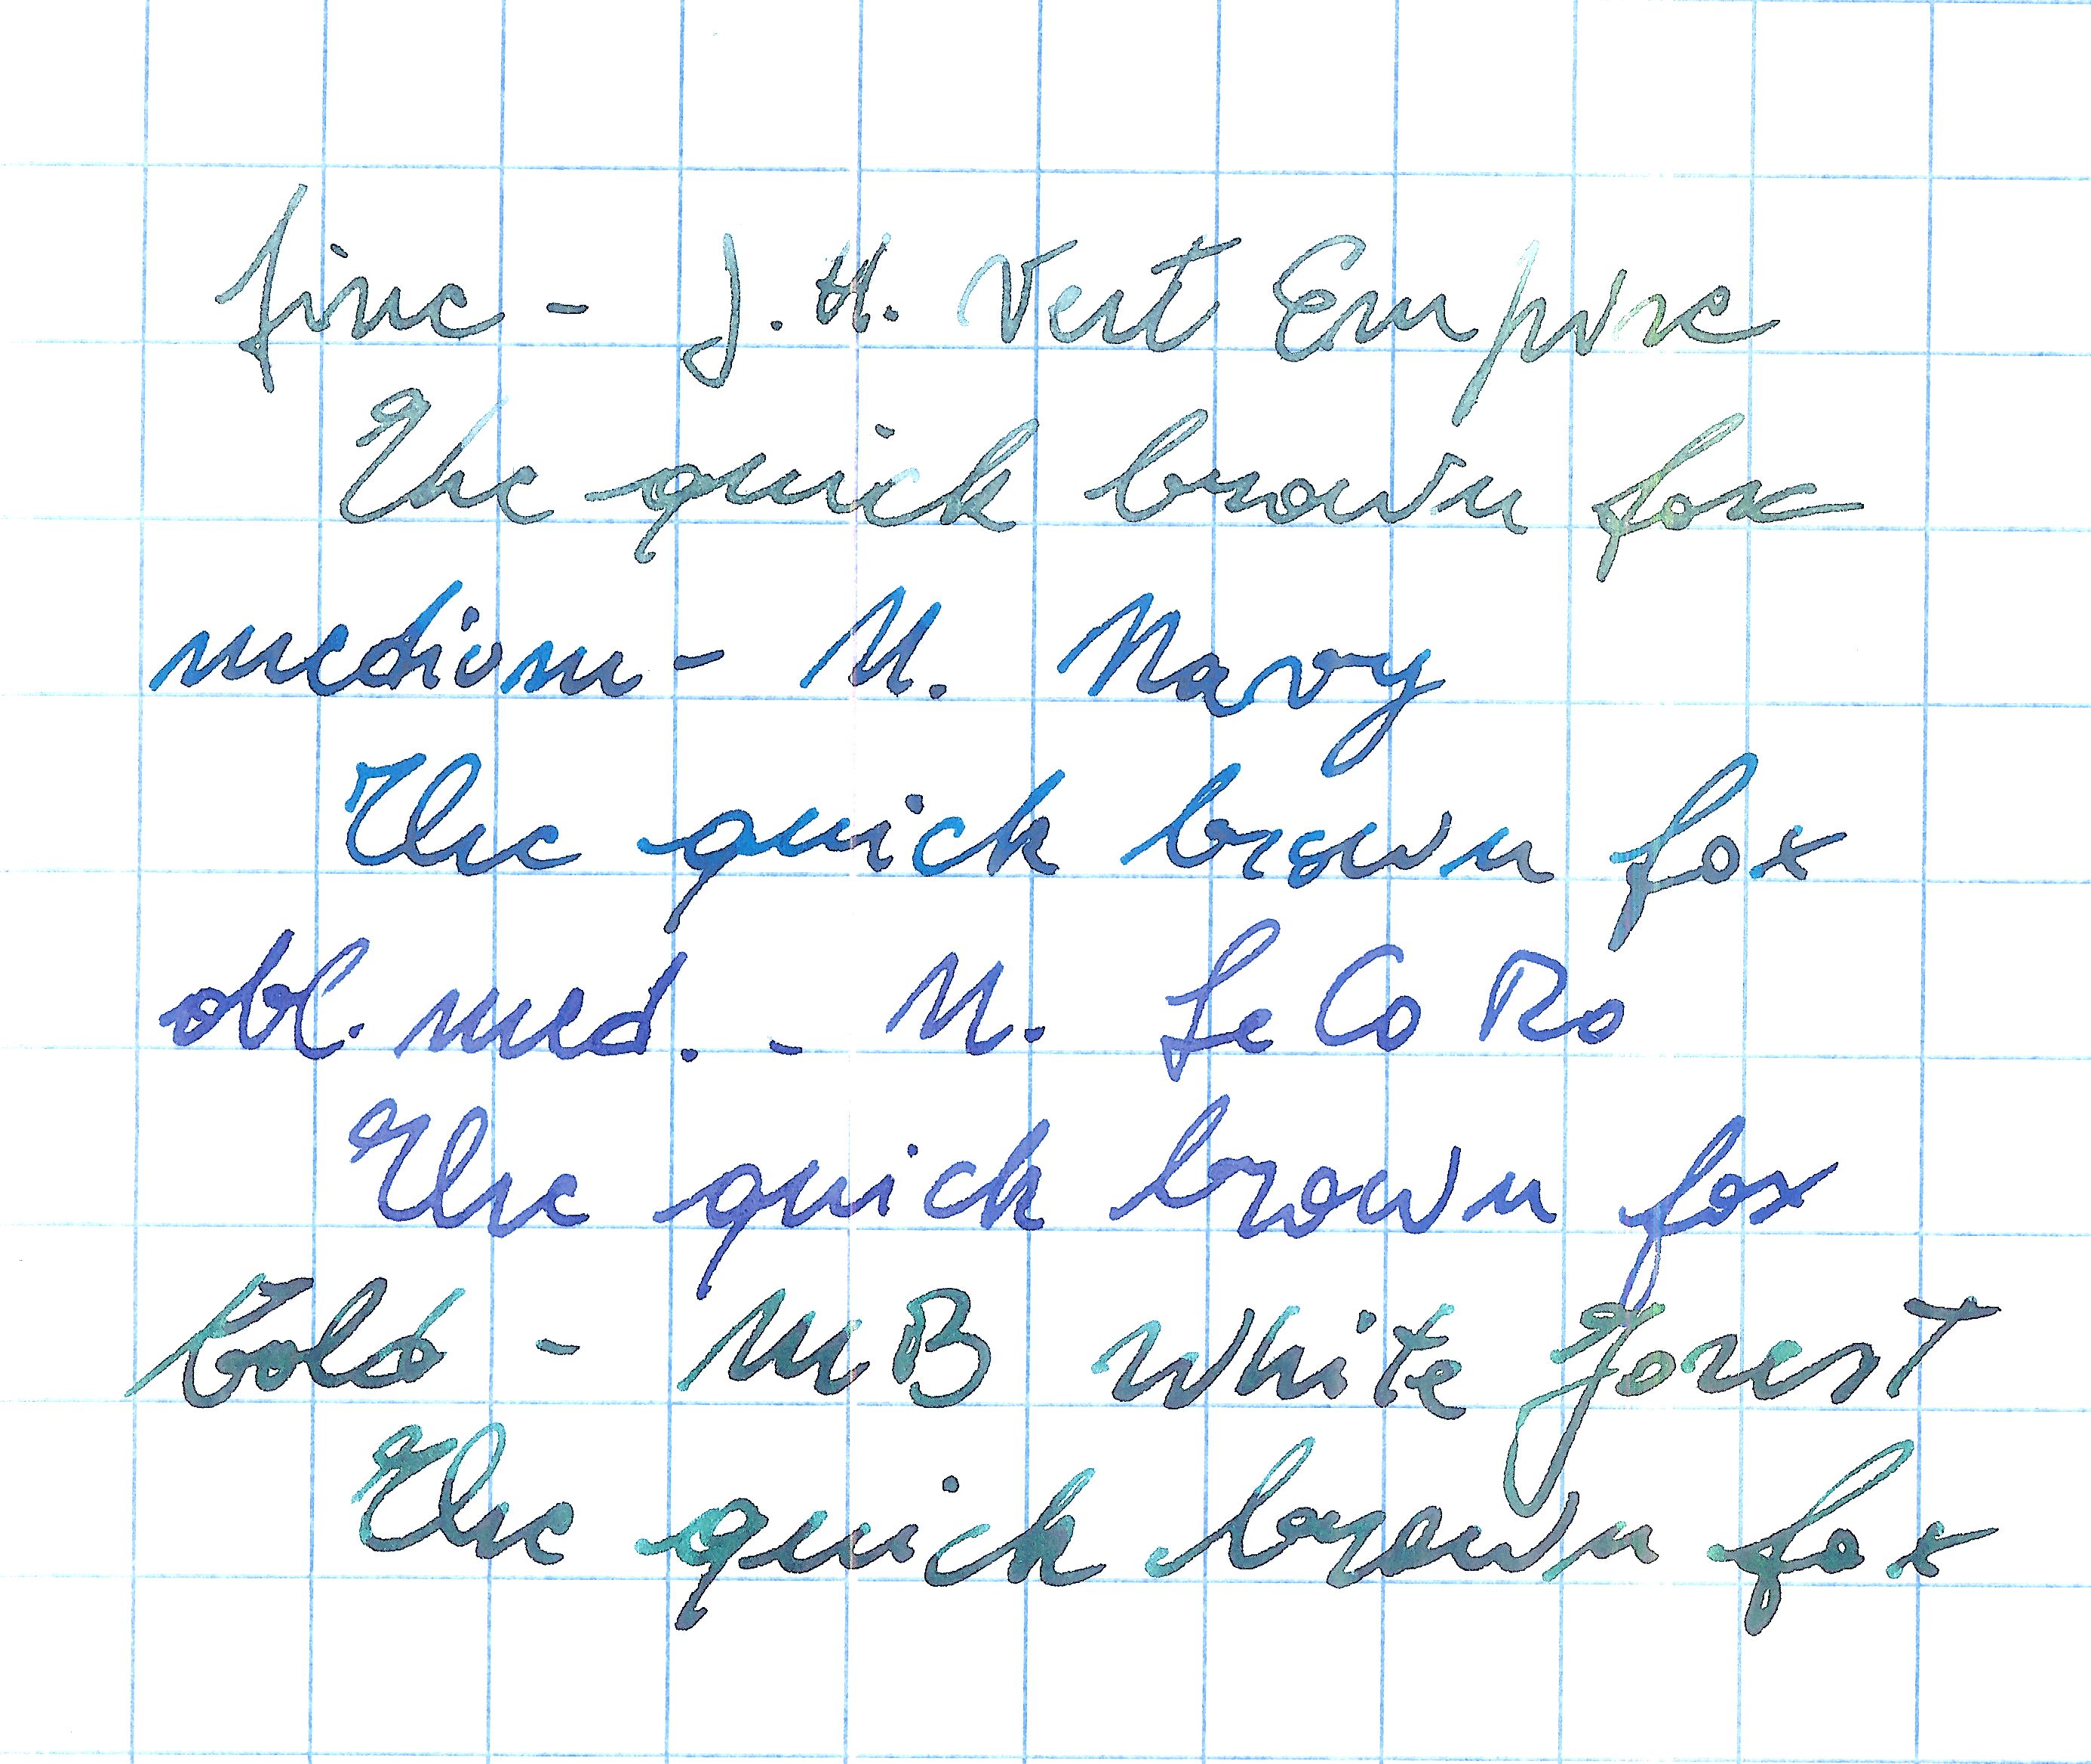 fine - J. H. Vert Empire
The quick brown fox
medium - M. Navy
The quick brown fox
obl. med. - M. Le Co Ro
The quick brown fox
bold - MB White Forest
The quick brown fox